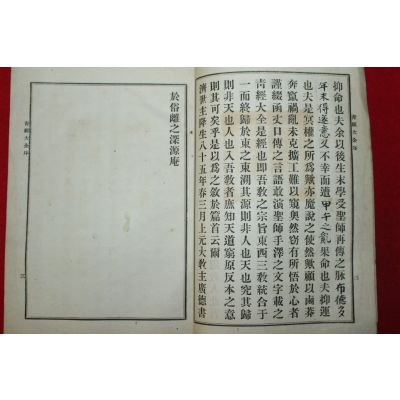 青經大全序
抑命也夫余以後生末學受聖師再傳之脉布德多
年未得遂意又不幸而遭甲午之亂果命也夫抑運
也夫冥權之所爲歟亦魔說之使然歟顧以鹵莽
奔竄禍亂未克擴工難以窺奧然窃有所悟於心者
謹綴函丈口傳之言語敢演聖師手澤之文字載之
青經大全是經也即吾敎之宗旨東西三敎統合于
一而終歸於東之東溯其源則非人也天也究其歸
則非天也人也入吾敎者庶知天道窮原反本之意
則其可矣乎是以爲之敘於篇首云爾
濟世主降生八十五年春三月上元大敎主廣德書
於俗離之深源庵
青經大全序
二